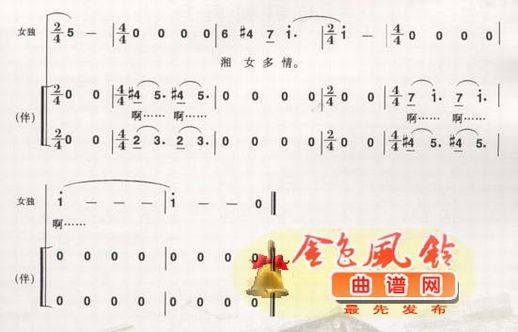 女独 2/4 5 — | 4/4 0 0 0 0 | 6 #4 7 i· | 2/4 i — | 4/4 0 0 0 0 |
湘 女 多 情。
(伴) 2/4 0 0 | 4/4 #4 5· #4 5· | 0 0 0 0 | 2/4 0 0 | 4/4 7 i· 7 i· |
啊…… 啊…… 啊…… 啊……
2/4 0 0 | 4/4 2 3· 2 3· | 0 0 0 0 | 2/4 0 0 | 4/4 #4 5· #4 5· |
女独 i — — — | i — — 0 ‖
啊……
(伴) 0 0 0 0 | 0 0 0 0
0 0 0 0 | 0 0
金色风铃
曲谱网
最先发布